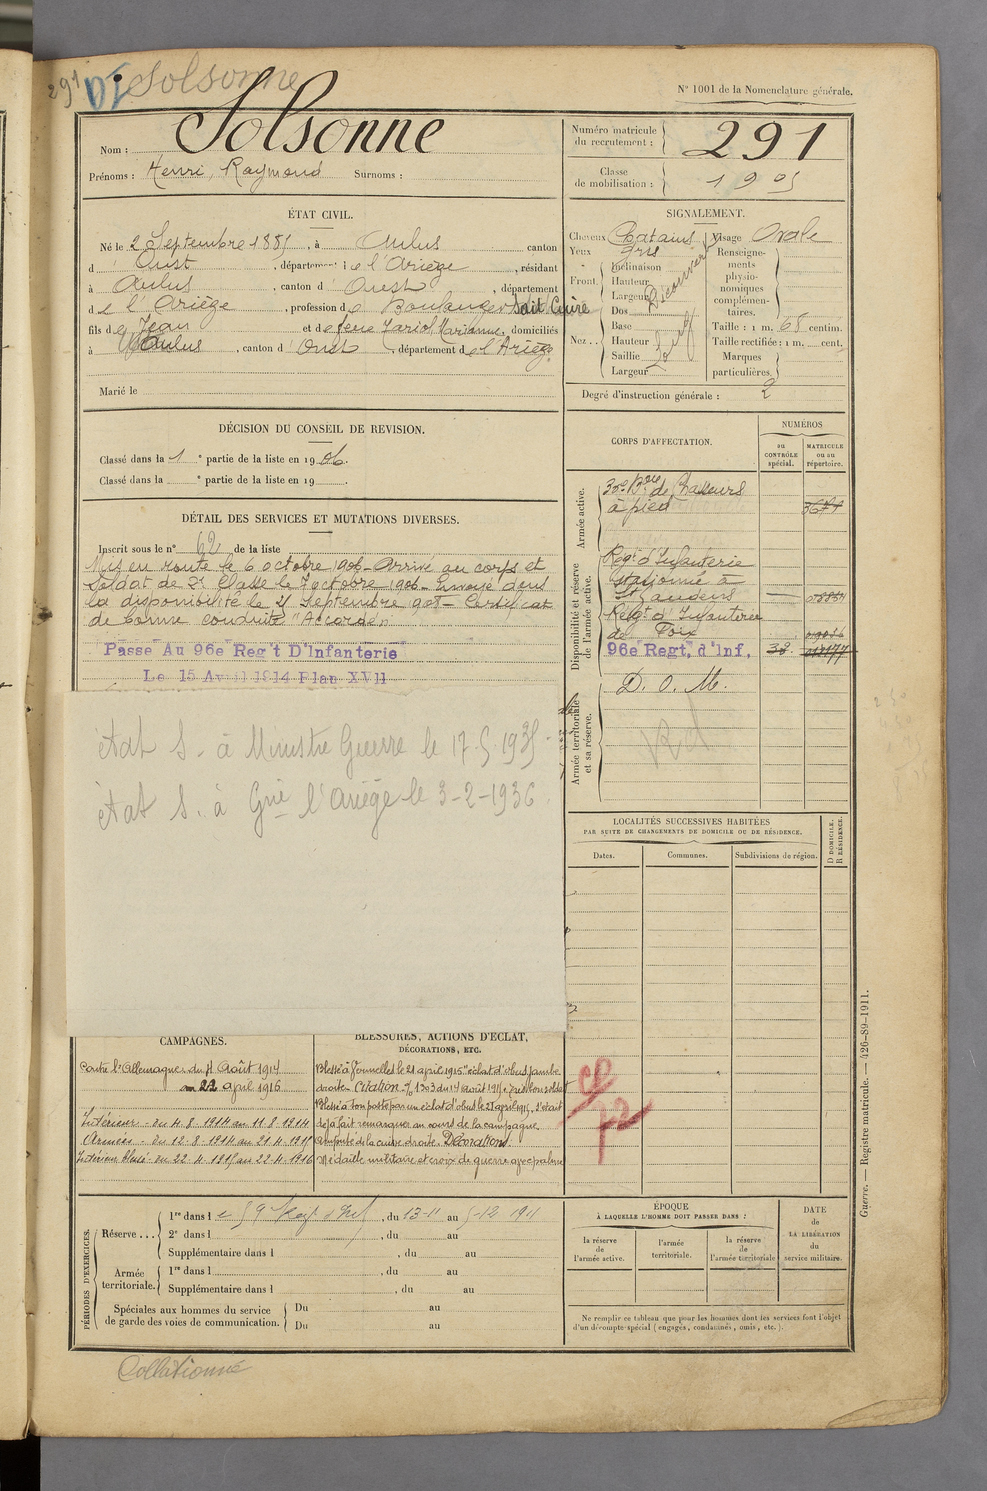 291 DI Solsonne
N° 1001 de la Nomenclature générale.
Nom : Solsonne
Prénoms : Henri, Raymond Surnoms :
Numéro matricule du recrutement : 291
Classe de mobilisation : 1905
ÉTAT CIVIL.
Né le 2 Septembre 1885, à Aulus canton
d' Oust, département de l'Ariège, résidant
à Aulus, canton d' Oust, département
de l'Ariège, profession de Boulanger Sait Cuire
fils de Jean et de Marianne, domiciliés
à Aulus, canton d' Oust, département de l'Ariège
Marié le
SIGNALEMENT.
Cheveux Chatains Visage Ovale
Yeux gris Renseignements physionomiques complémentaires.
Front. Inclinaison
Hauteur
Largeur
Découvert
Nez.. Dos
Base
Hauteur
Saillie
Largeur
Taille : 1 m. 68 centim.
Taille rectifiée : 1 m. cent.
Marques particulières.
Degré d'instruction générale : 2
DÉCISION DU CONSEIL DE REVISION.
Classé dans la 1e partie de la liste en 1906.
Classé dans la e partie de la liste en 19 .
DÉTAIL DES SERVICES ET MUTATIONS DIVERSES.
Inscrit sous le n° 62 de la liste
Mis en route le 6 octobre 1906 - Arrivé au corps et
Soldat de 2e Classe le 7 octobre 1906 - Envoyé dans
la disponibilité le 25 Septembre 1908 - Certificat
de bonne conduite "Accordé"
Passe Au 96e Reg't D'Infanterie
Le 15 Avril 1914 Plan XVII
État S. à Ministre Guerre le 17-5-1935
État S. à Grie l'Ariège le 3-2-1936
CORPS D'AFFECTATION.
NUMÉROS
au CONTRÔLE spécial.
MATRICULE ou au répertoire.
Armée active.
de Chasseurs
à pied
Disponibilité et réserve de l'armée active.
Regt d'Infanterie
stationné à
St Gaudens
Regt d'Infanterie
de Foix
96e Regt. d'Inf.
Armée territoriale et sa réserve.
D. O. M.
Rd
LOCALITÉS SUCCESSIVES HABITÉES
PAR SUITE DE CHANGEMENTS DE DOMICILE OU DE RÉSIDENCE.
Dates. Communes. Subdivisions de région.
D DOMICILE.
R RÉSIDENCE.
CAMPAGNES.
Contre l'Allemagne du 4 Août 1914
au 22 april 1916
Intérieur - du 4.8.1914 au 11.8.1914
Armées - du 12.8.1914 au 21.4.1915
Intérieur blessé - du 22.4.1915 au 22.4.1916
BLESSURES, ACTIONS D'ÉCLAT, DÉCORATIONS, ETC.
Blessé à le 21 april 1915 "éclat d'obus jambe
droite. Citation du 14 août 1915. très bon soldat
Blessé à son poste par un éclat d'obus le 21 april 1915, s'était
déjà fait remarquer au cours de la campagne.
Amputé de la cuisse droite. Décorations.
Médaille militaire et croix de guerre avec palme
CP
72
PÉRIODES D'EXERCICES.
Réserve... 1re dans le 59 Regt d'Inf, du 13-11 au 5-12 1911
2e dans l , du au
Supplémentaire dans l , du au
Armée territoriale. 1re dans l , du au
Supplémentaire dans l , du au
Spéciales aux hommes du service de garde des voies de communication. Du au
Du au
ÉPOQUE
À LAQUELLE L'HOMME DOIT PASSER DANS :
la réserve de l'armée active.
l'armée territoriale.
la réserve de l'armée territoriale
DATE de LA LIBÉRATION du service militaire.
Ne remplir ce tableau que pour les hommes dont les services font l'objet
d'un décompte spécial (engagés, condamnés, omis, etc.).
Guerre. — Registre matricule. — 426-89-1911.
Collationné